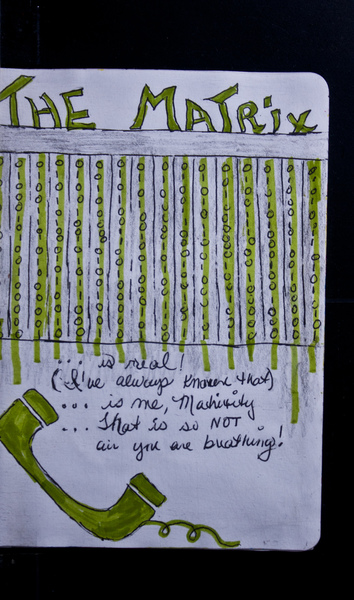 THE MATRIX
... is real!
(I've always known that)
... is me,
... That is so NOT
air you are breathing!